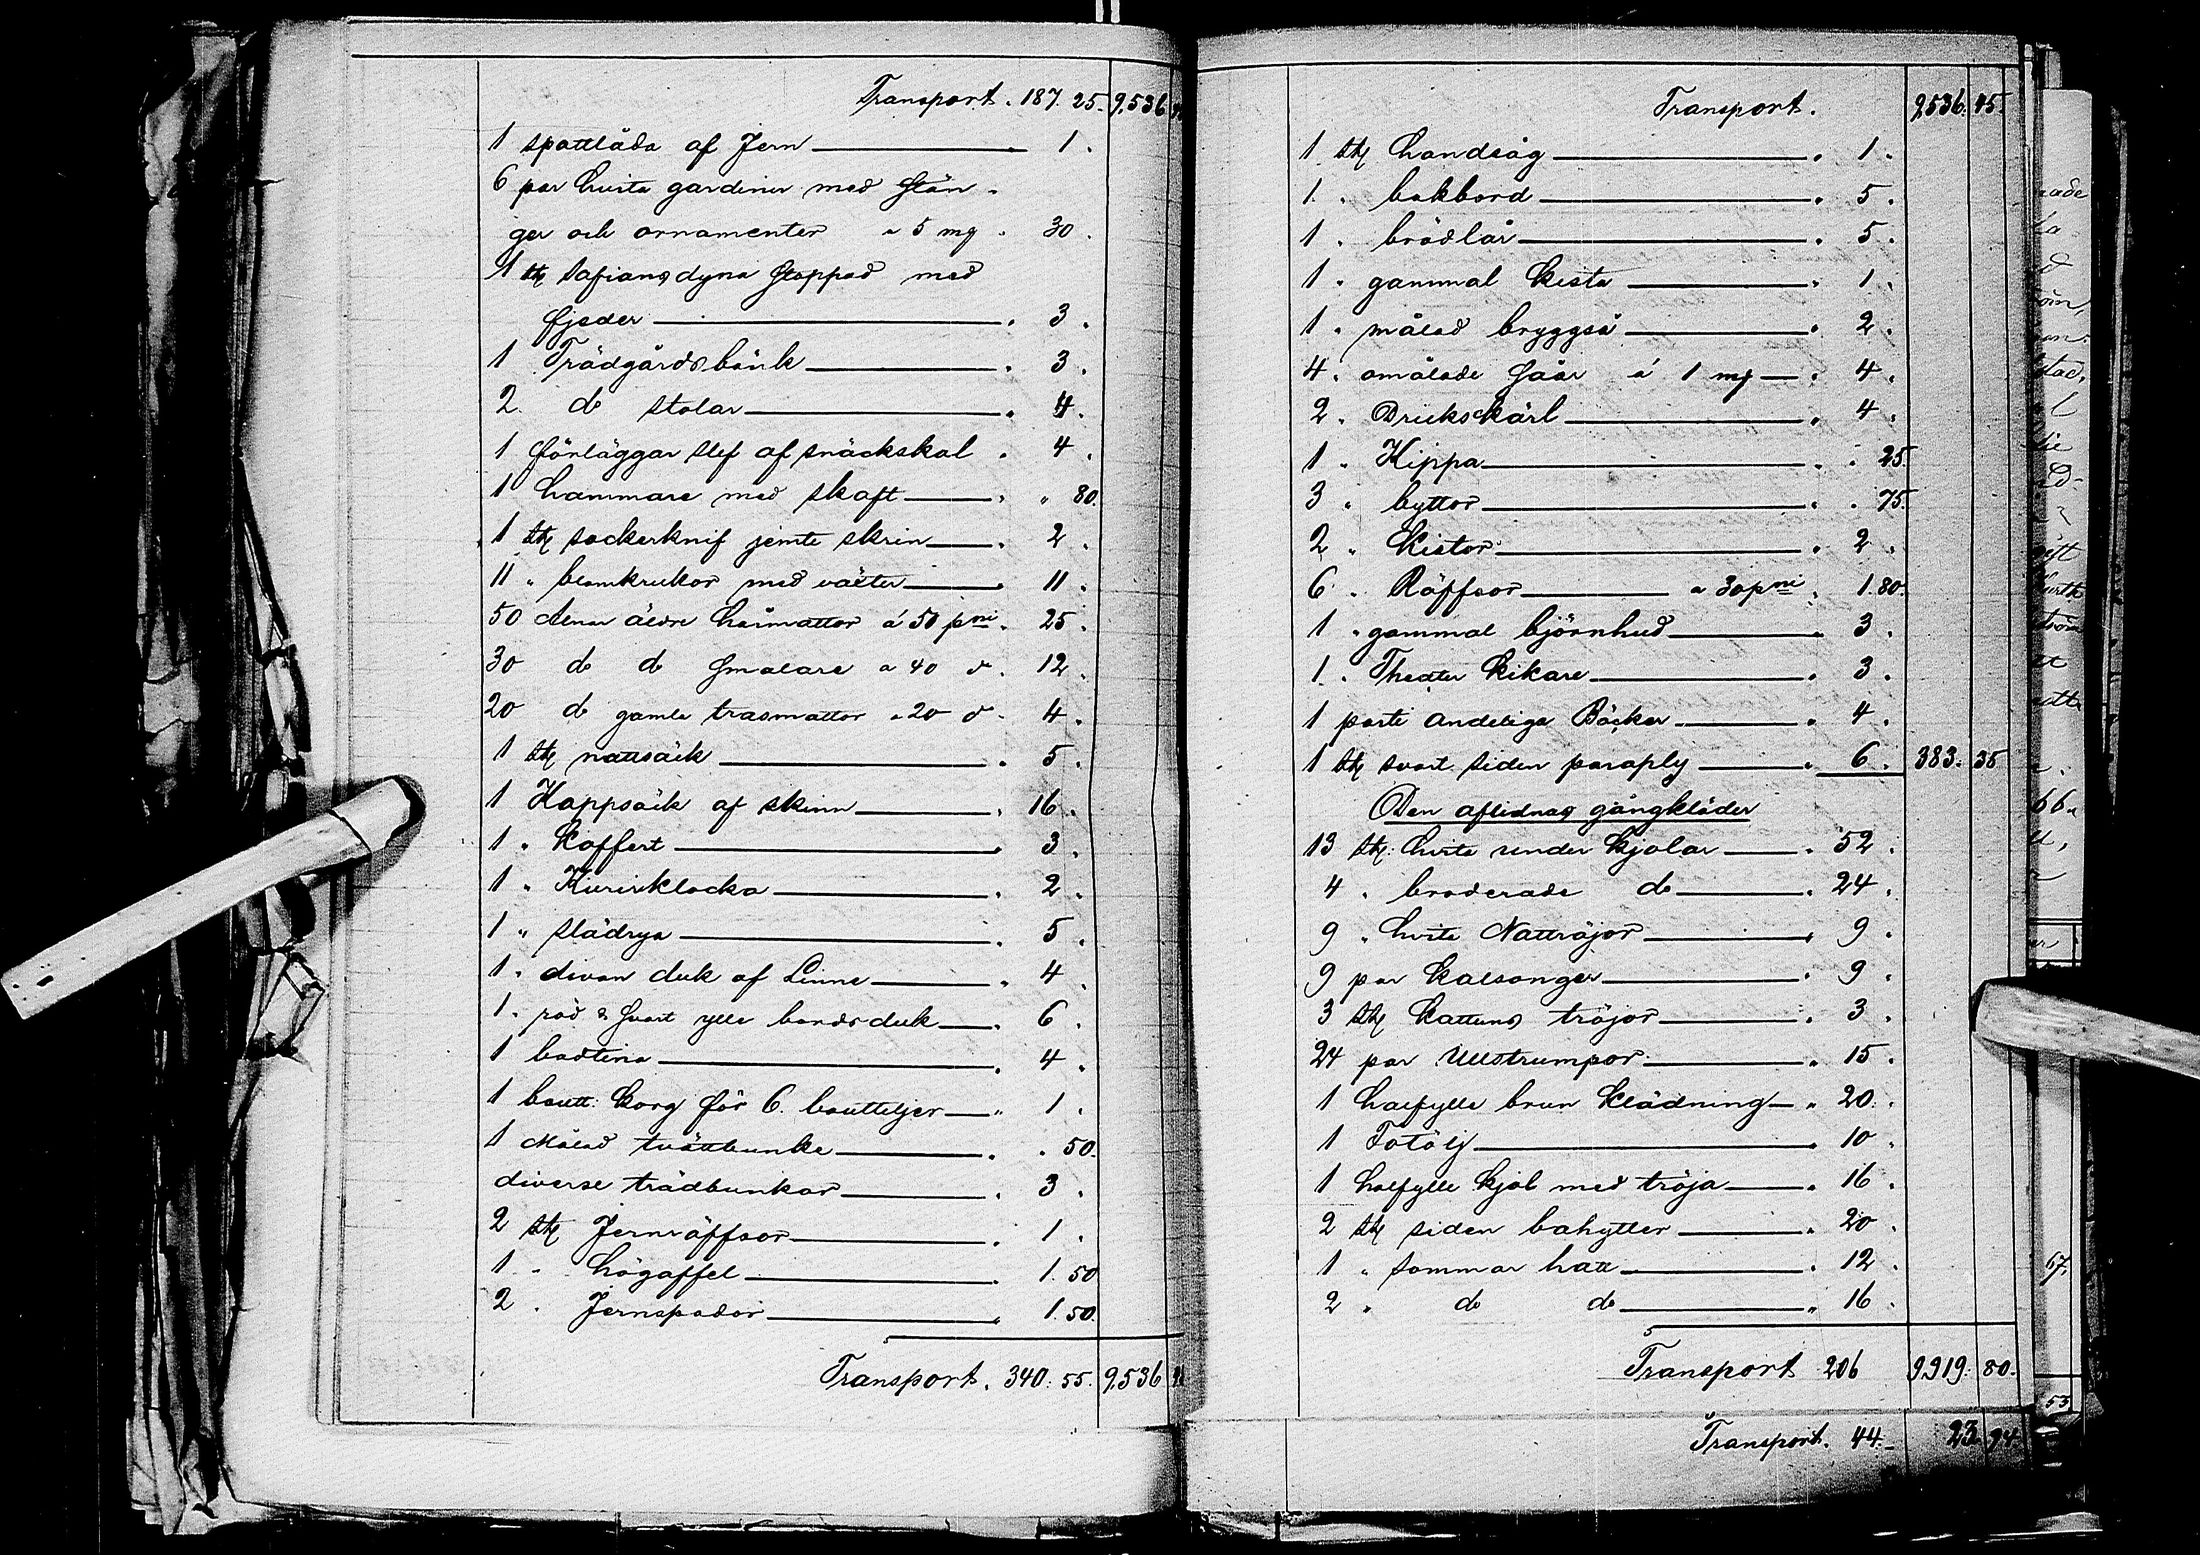 Transport. 187. 25. 9,536
1 spottlåda af Jern — 1.
6 par hvita gardiner med stän-
ger och ornamenter a 5 mg. 30.
1 stk safians dyna stoppad med
fjeder — 3.
1 Trädgårdsbänk — 3.
2. do stolar — 4.
1 förläggar slef af snäckskal . 4.
1 hammare med skaft — " 80.
1 stk sockerknif jemte skrin — 2.
11 " blomkrukor med växter — 11.
50 alnar äldre hårmattor á 50 pni. 25.
30 do do smalare a 40 d. 12.
20 do gamla trasmattor a 20 d. 4.
1 stk nattsäck — 5.
1 Kappsäck af skinn — 16.
1 " Koffert — 3.
1 " Kurirklocka — 2.
1 " slädrya — 5.
1 " divan duk af Linne — 4.
1. röd & svart ylle bordsduk — 6.
1 badtina — 4.
1 boutt: korg för 6. boutteljer — 1.
1 Målad tvättbunke — . 50.
diverse trädbunkar — 3.
2 stk Jernräffsor — 1.
1 " högaffel — 1. 50
2 . Jernspador — 1. 50.
Transport. 340. 55. 9,536
Transport. 9536. 45.
1 stk handsåg — 1.
1. " bakbord — 5.
1 " brödlår — 5.
1 " gammal kista — 1.
1 " målad bryggså — 2.
4 " omålade såar á 1 mg — 4.
2 " Drickskärl — 4.
1 " Kippa — . 25.
3 " byttor — . 75.
2 " Kistor — 2.
6 " Räffsor — a 30 pni . 1. 80.
1 " gammal björnhud — 3.
1. " Theater Kikare — 3.
1 parti andeliga Böcker — 4.
1 stk svart siden paraply — 6. 383. 35
Den aflidnas gångkläder
13 stk: hvita under kjolar — 52.
4 " broderade do — 24.
9 " hvita Nattröjor — 9.
9 par Kalsonger — 9.
3 stk Kattuns tröjor — 3.
24 par Ullstrumpor — 15.
1 halfylle brun Klädning — 20.
1 — 10.
1 halfylle kjol med tröja — 16.
2 stk siden bahytter — 20.
1 " sommar hatt — 12.
2 " do do — 16.
Transport 206 9,919. 80.
Transport. 44. 23 94